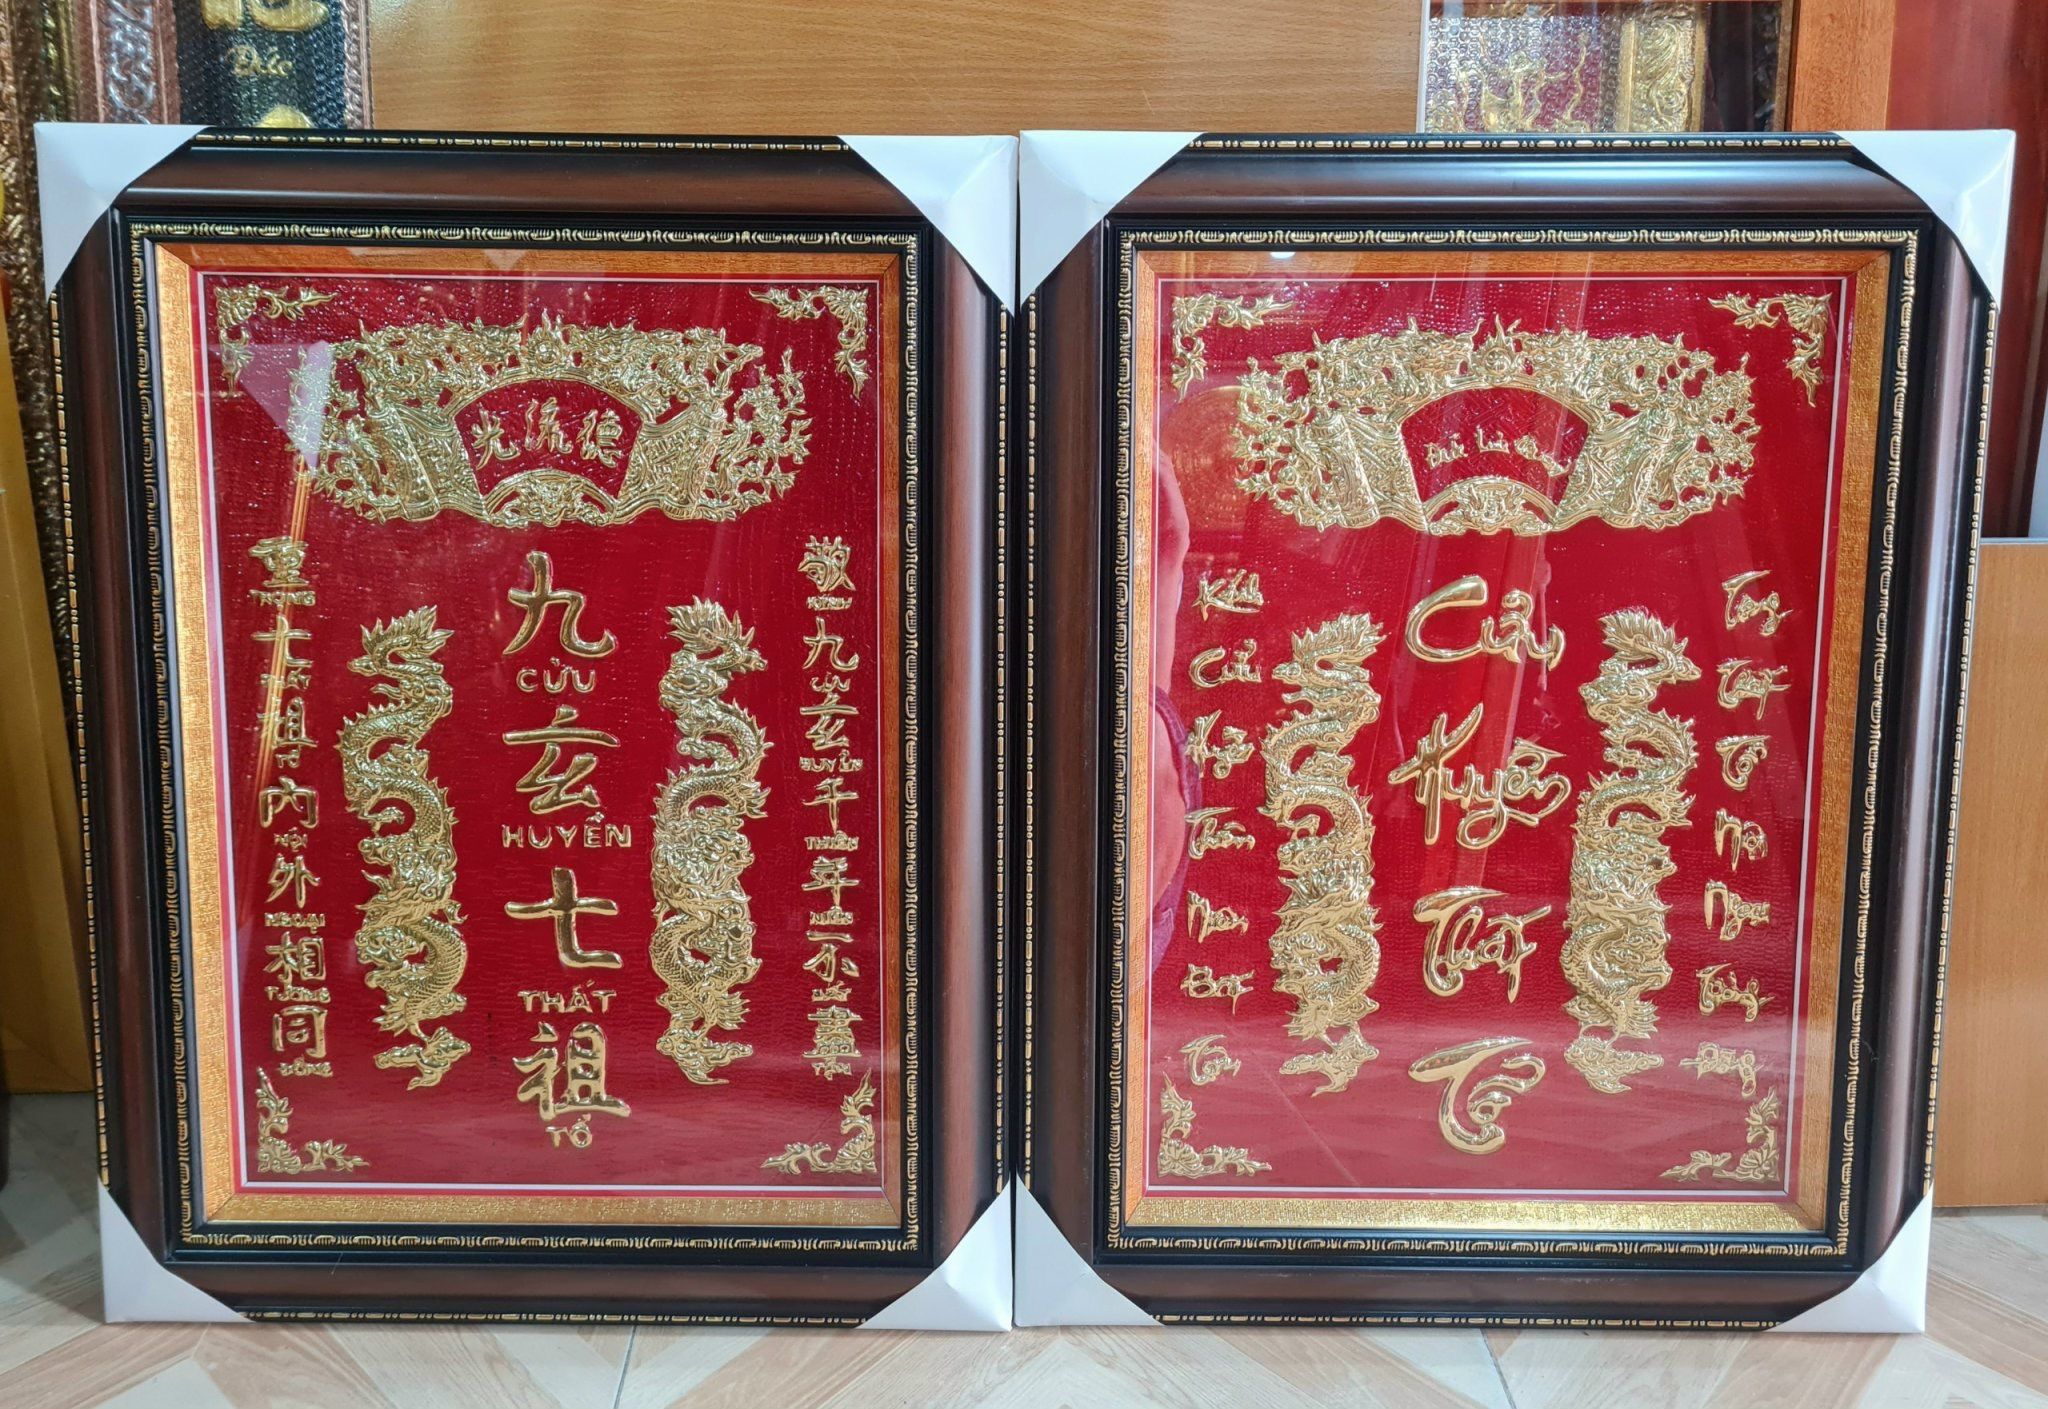 Đức
光流德
九
CỬU
玄
HUYỀN
七
THẤT
祖
TỔ
敬
KÍNH
九
CỬU
玄
HUYỀN
千
THIÊN
年
NIÊN
不
BẤT
盡
TẬN
重
TRỌNG
七
THẤT
祖
TỔ
內
NỘI
外
NGOẠI
相
TƯƠNG
同
ĐỒNG
Đức Lưu Quang
Cửu
Huyền
Thất
Tổ
Kính
Cửu
Huyền
Thiên
Niên
Bất
Tận
Trọng
Thất
Tổ
Nội
Ngoại
Tương
Đồng